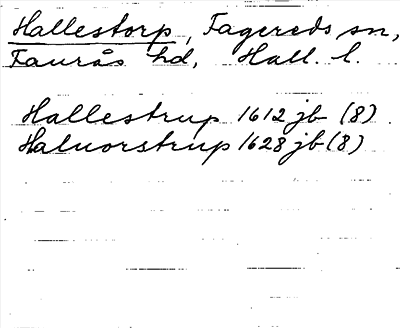 Hallestorp, Fagereds sn,
Faurås hd, Hall. l.
Hallestrup 1612 jb (8)
Haluorstrup 1628 jb (8)